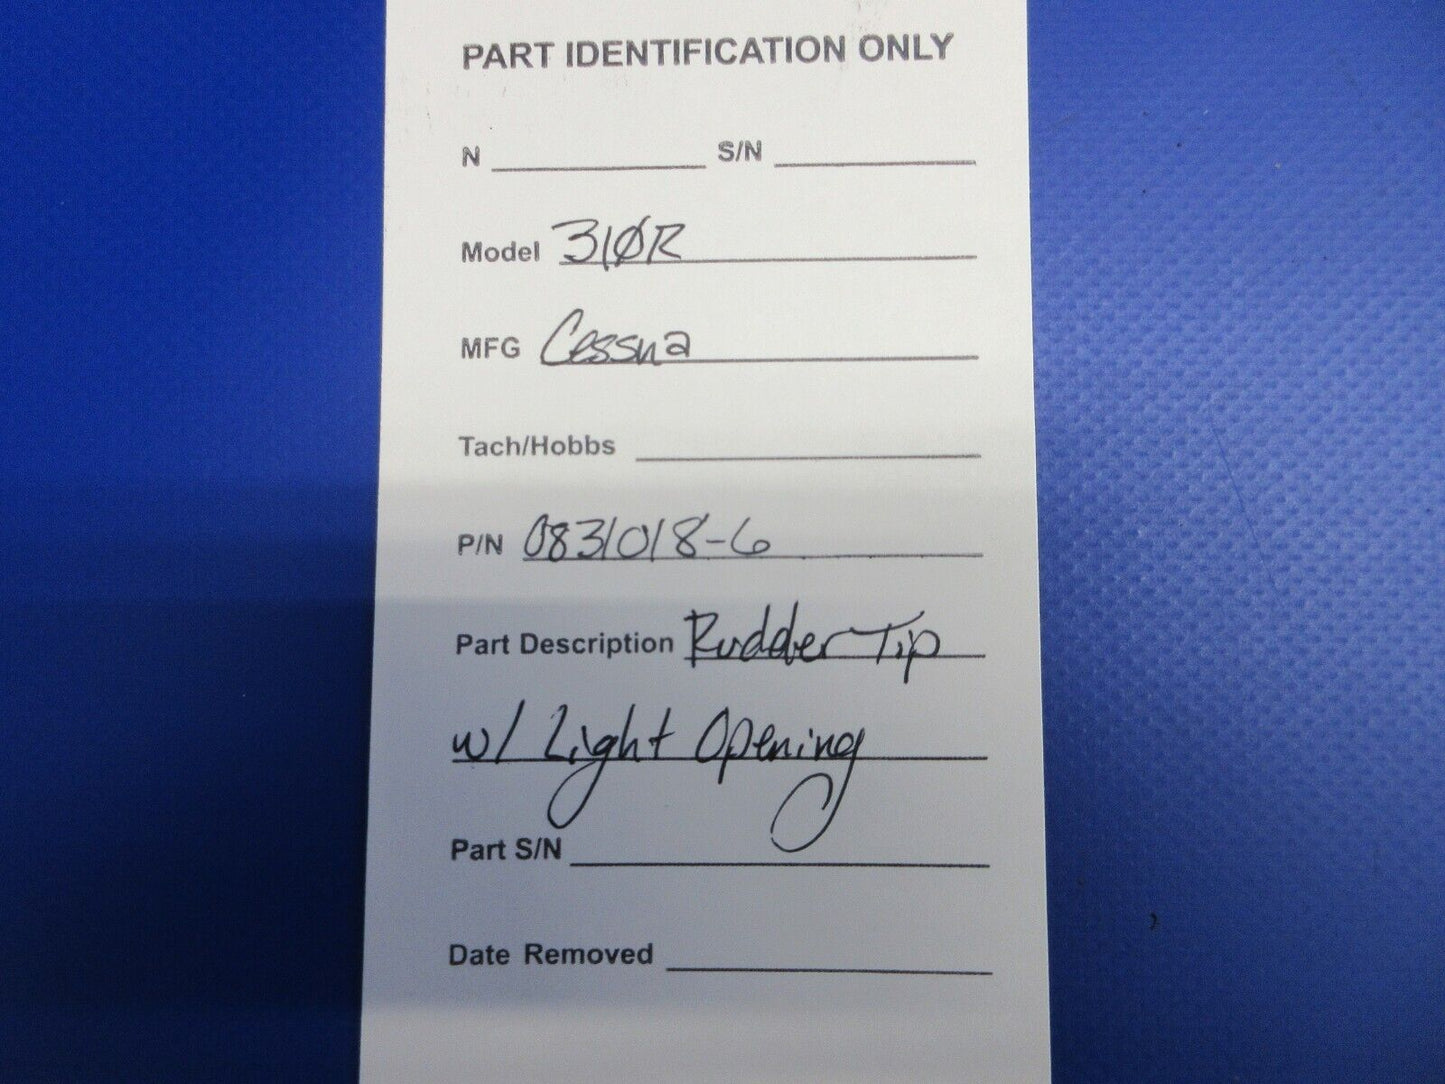 PART IDENTIFICATION ONLY
N S/N
Model 310R
MFG Cessna
Tach/Hobbs
P/N 0831018-6
Part Description Rudder Tip
w/ Light Opening
Part S/N
Date Removed